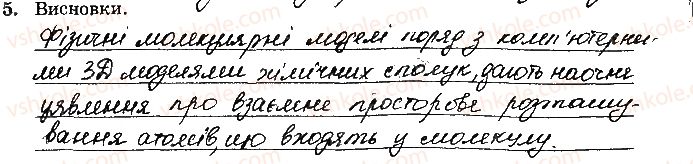 5. Висновки.
Фізичні молекулярні моделі поряд з комп'ютерни-
ми 3Д моделями хімічних сполук, дають наочне
уявлення про взаємне просторове розташу-
вання атомів, що входять у молекулу.